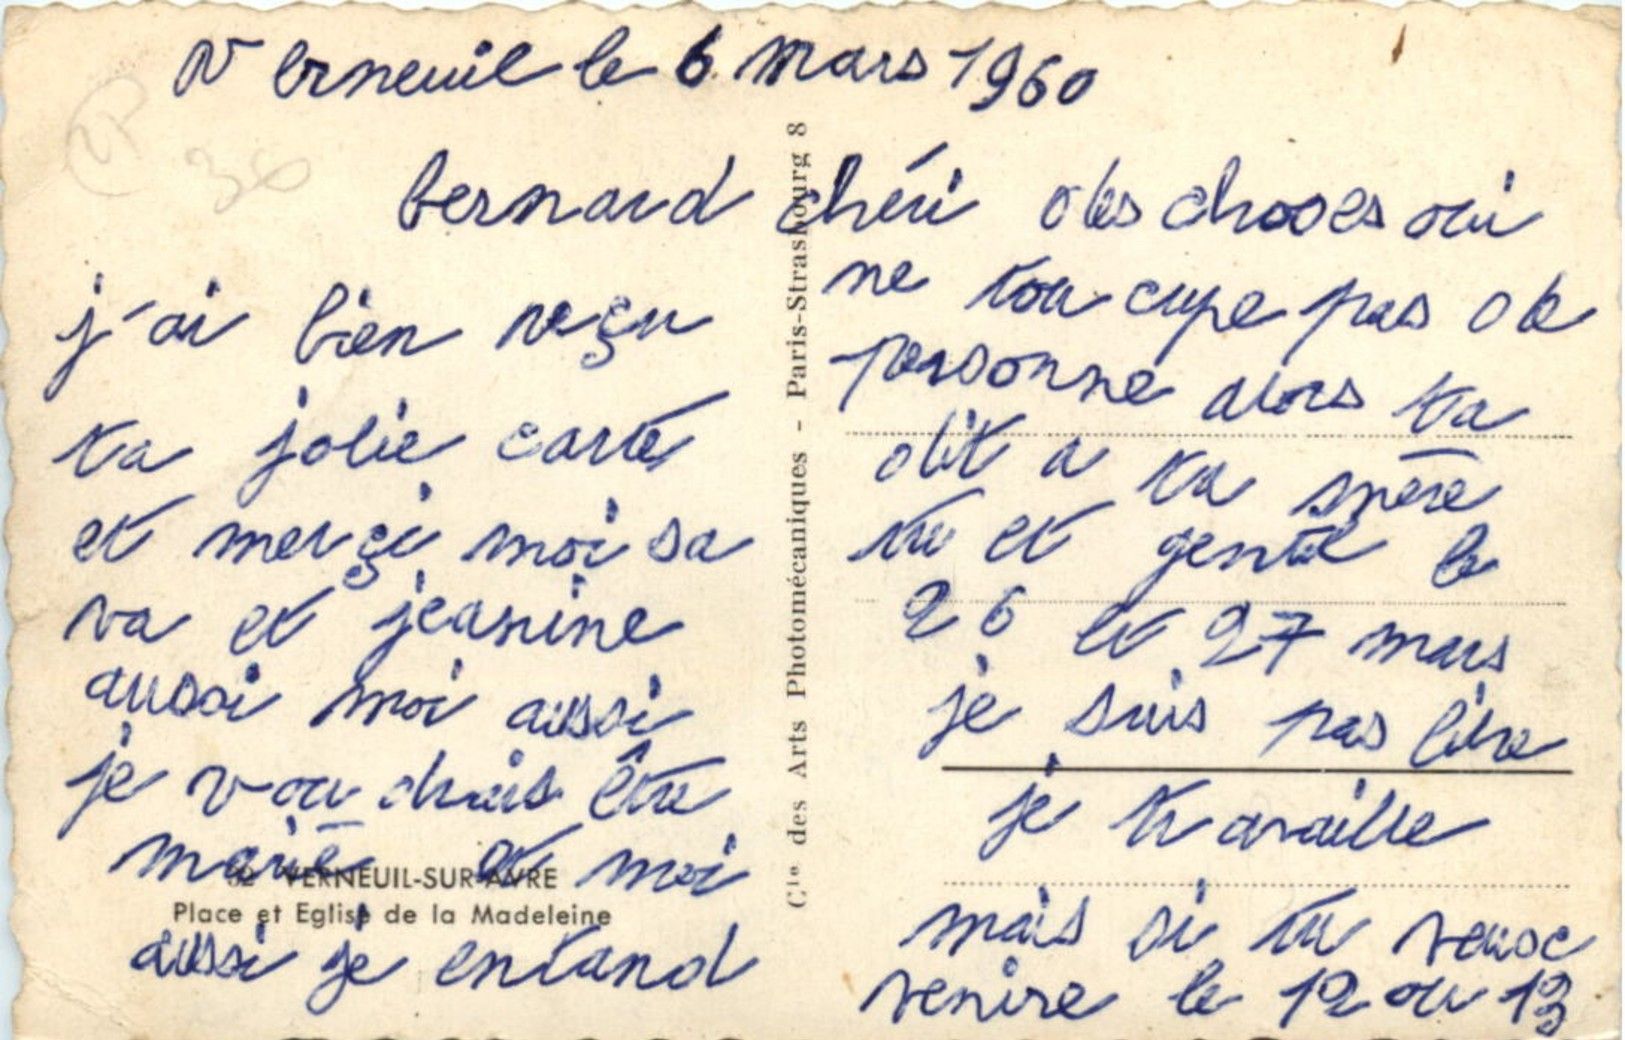 Verneuil le 6 mars 1960
bernard chéri
j'ai bien reçu
ta jolie carte
et merçi moi sa
va et jeanine
aussi moi aussi
je voudrais être
marié et moi
aussi je entand
des choses oui
ne tou cupe pas de
personne alors ta
dit a ta mère
tu et gentil le
26 et 27 mars
je suis pas libre
je travaille
mais si tu veuse
venire le 12 ou 13
32 VERNEUIL-SUR-AVRE
Place et Eglise de la Madeleine
Cie des Arts Photomécaniques - Paris-Strasbourg 8
36